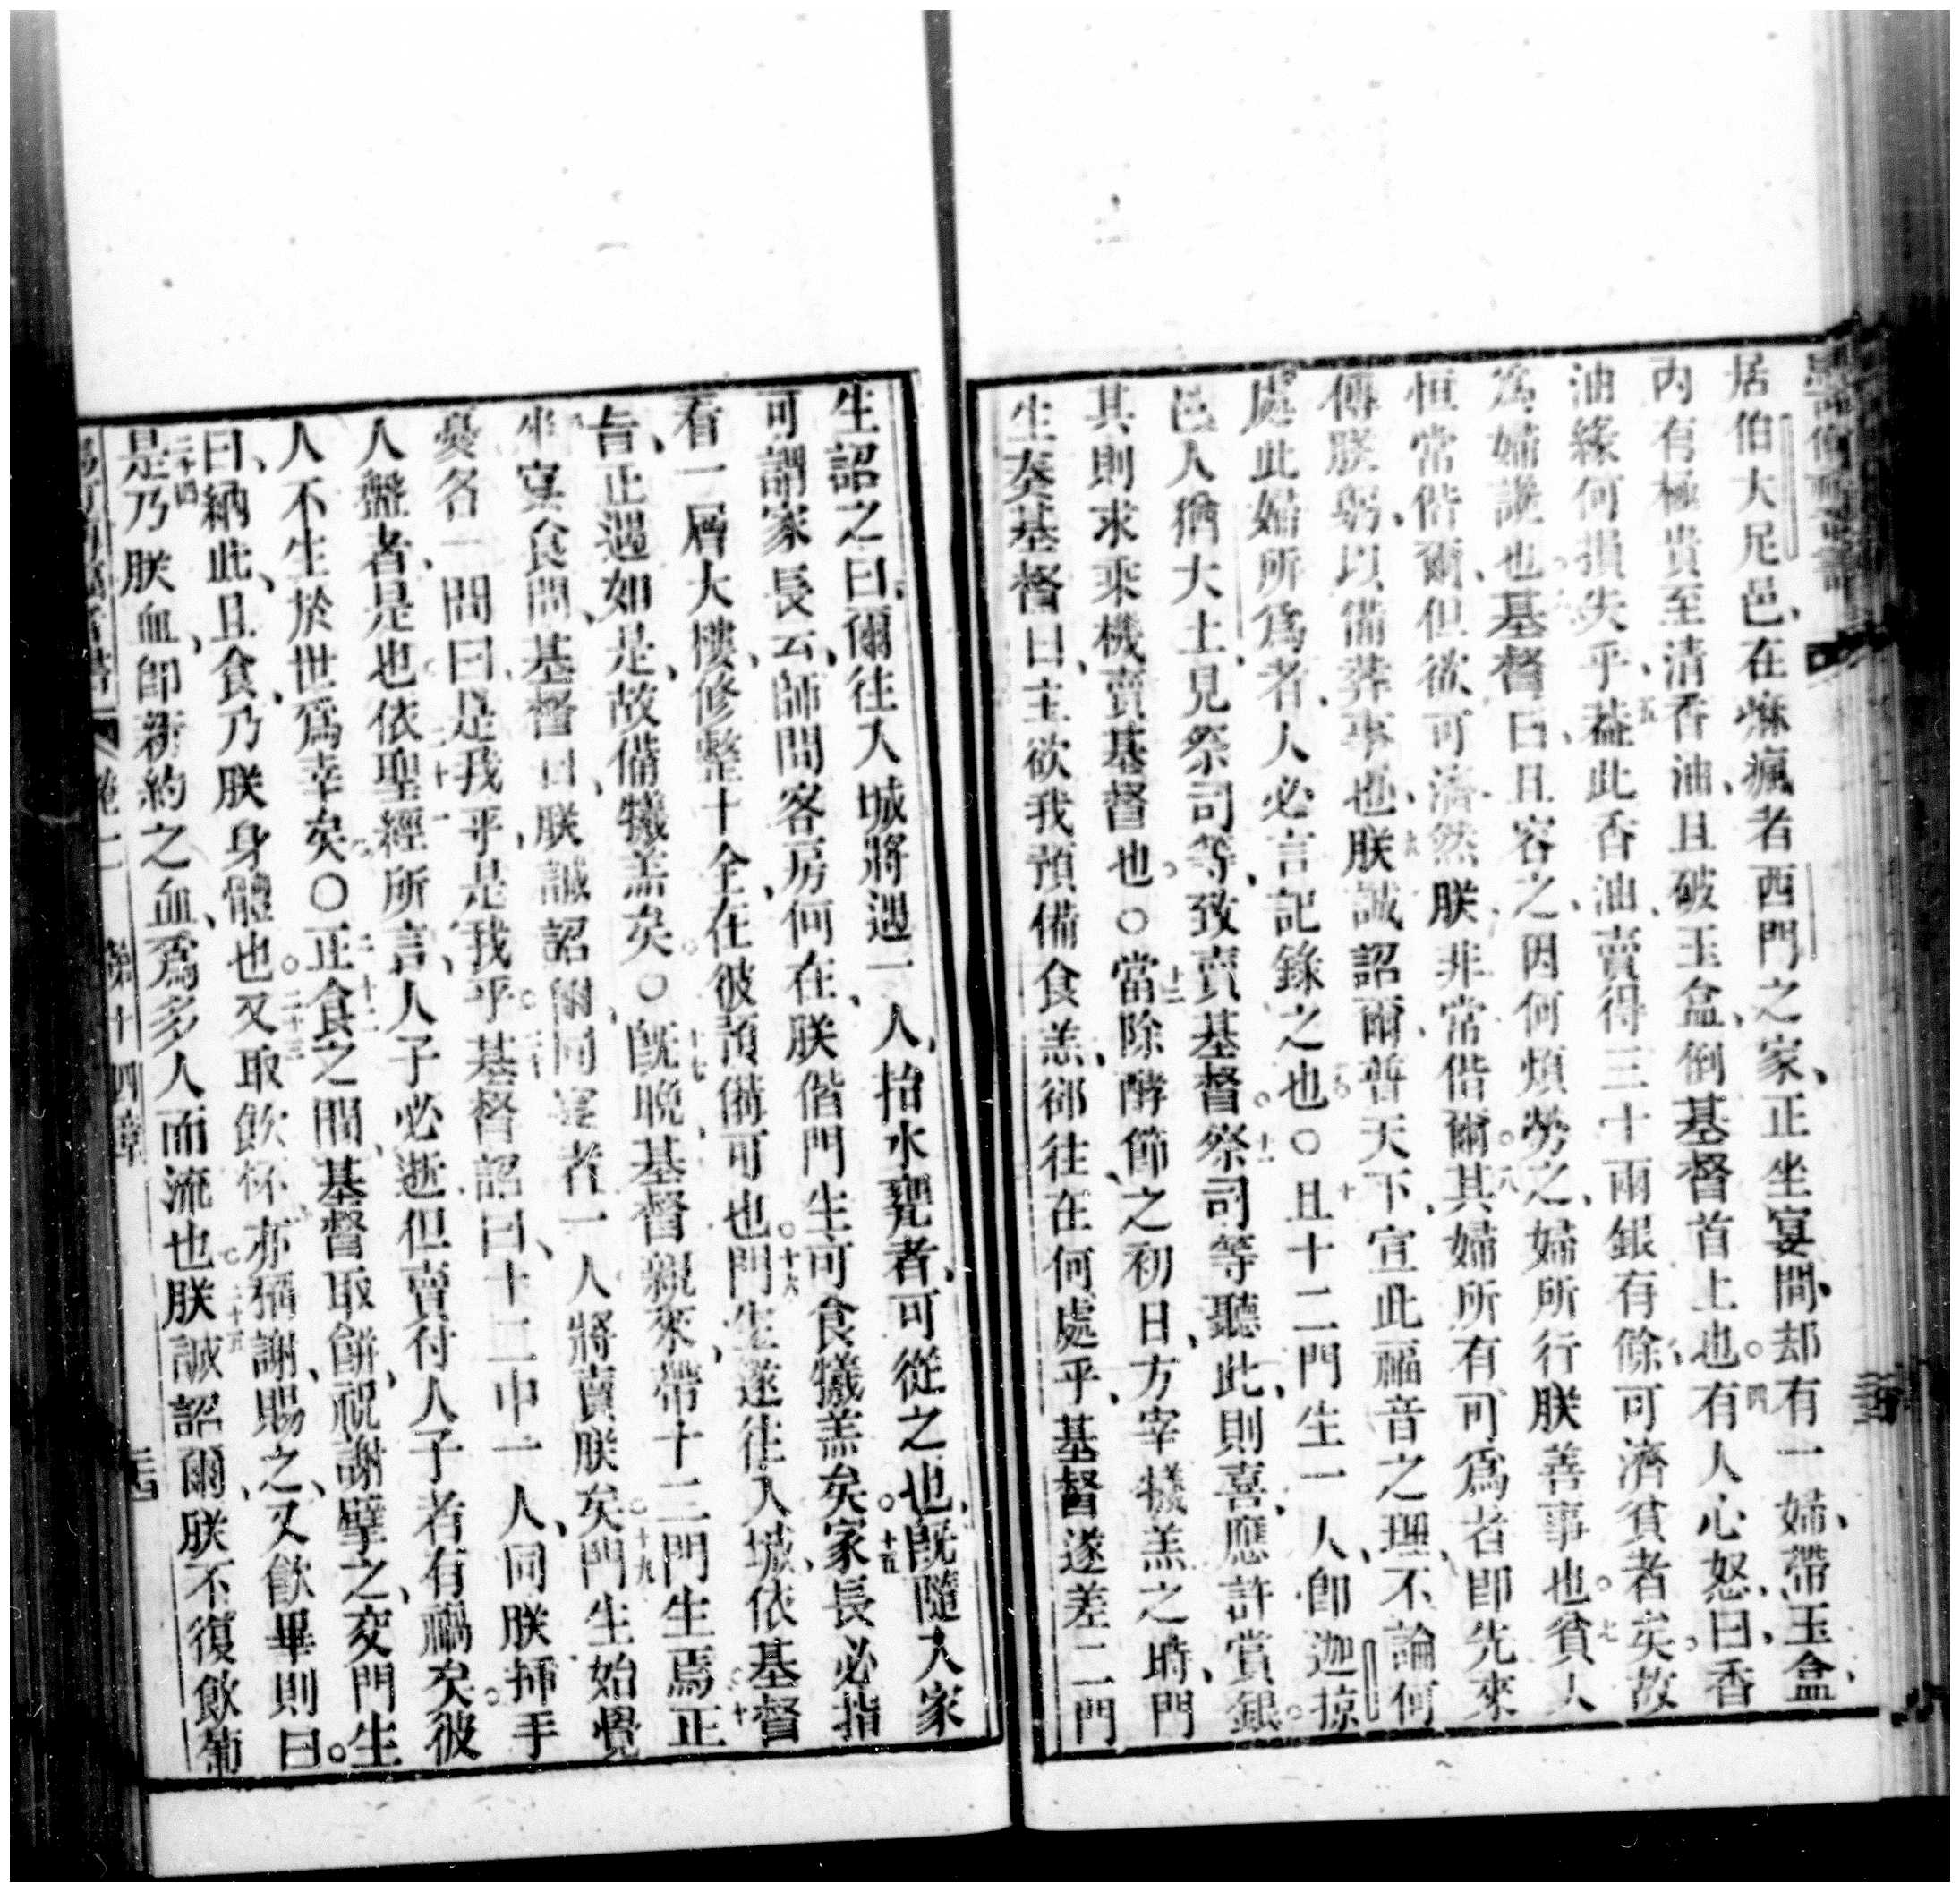 居伯大尼邑、在痳瘋者西門之家、正坐宴間、却有一婦、帶玉盒、
內有極貴至清香油、且破玉盒、倒基督首上也。四有人心怒、曰、香
油緣何損失乎、五蓋此香油、賣得三十兩銀有餘、可濟貧者矣。故
爲婦譏也。六基督曰、且容之、因何煩勞之、婦所行朕善事也。七貧人
恒常偕爾、但欲可濟、然朕非常偕爾。八其婦所有可爲者、卽先來
傅朕躬、以備葬事也。九朕誠詔爾、普天下、宣此福音之理、不論何
處、此婦所爲者、人必言記錄之也。○十且十二門生一人、卽迦掠
邑人猶大士、見祭司等、致賣基督。十一祭司等聽此、則喜、應許賞銀。
其則求乘機賣基督也。○十二當除酵節之初日、方宰犧羔之時、門
生奏基督曰、主欲我預備食羔、卻往在何處乎、基督遂差二門
生詔之曰、爾往入城、將遇一人、抬水甕者、可從之也、旣隨入家
可謂家長云、師問客房何在、朕偕門生可食犧羔矣。十五家長必指
看一層大樓、修整十全、在彼預備可也。十六門生遂往入城、依基督
旨、正遇如是、故備犧羔矣。○十七旣晚、基督親來、帶十二門生焉、正
坐宴食間、基督曰、朕誠詔爾、同宴者一人將賣朕矣。十九門生始覺
憂、各一問曰、是我乎、是我乎。二十基督詔曰、十二中一人、同朕揷手
入盤者是也。二十一依聖經所言、人子必逝、但賣付人子者有禍矣。彼
人不生於世爲幸矣。○二十二正食之間、基督取餅、祝謝擘之、交門生
曰、納此、且食、乃朕身體也。二十三又取飲杯、亦稱謝、賜之、又飲畢、則曰。
二十四是乃朕血、卽新約之血、爲多人而流也。二十五朕誠詔爾、朕不復飲葡
第十四章